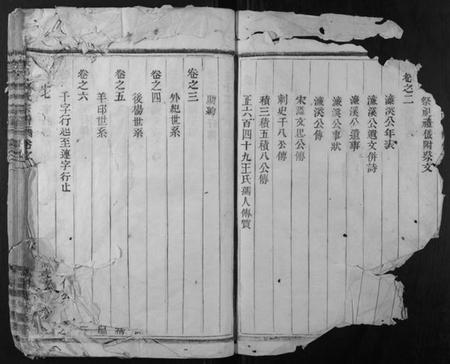 祭祀禮儀附祭文
卷之二
濂溪公年表
濂溪公遺文併詩
濂溪公遺事
濂溪公事狀
濂溪公傳
宋 公傳
刺史千八公傳
積二積五積八公傳
正六百四十九王氏孺人傳贊
卷之三
外紀世系
卷之四
後 世系
卷之五
羊邱世系
卷之六
千字行起至連字行止